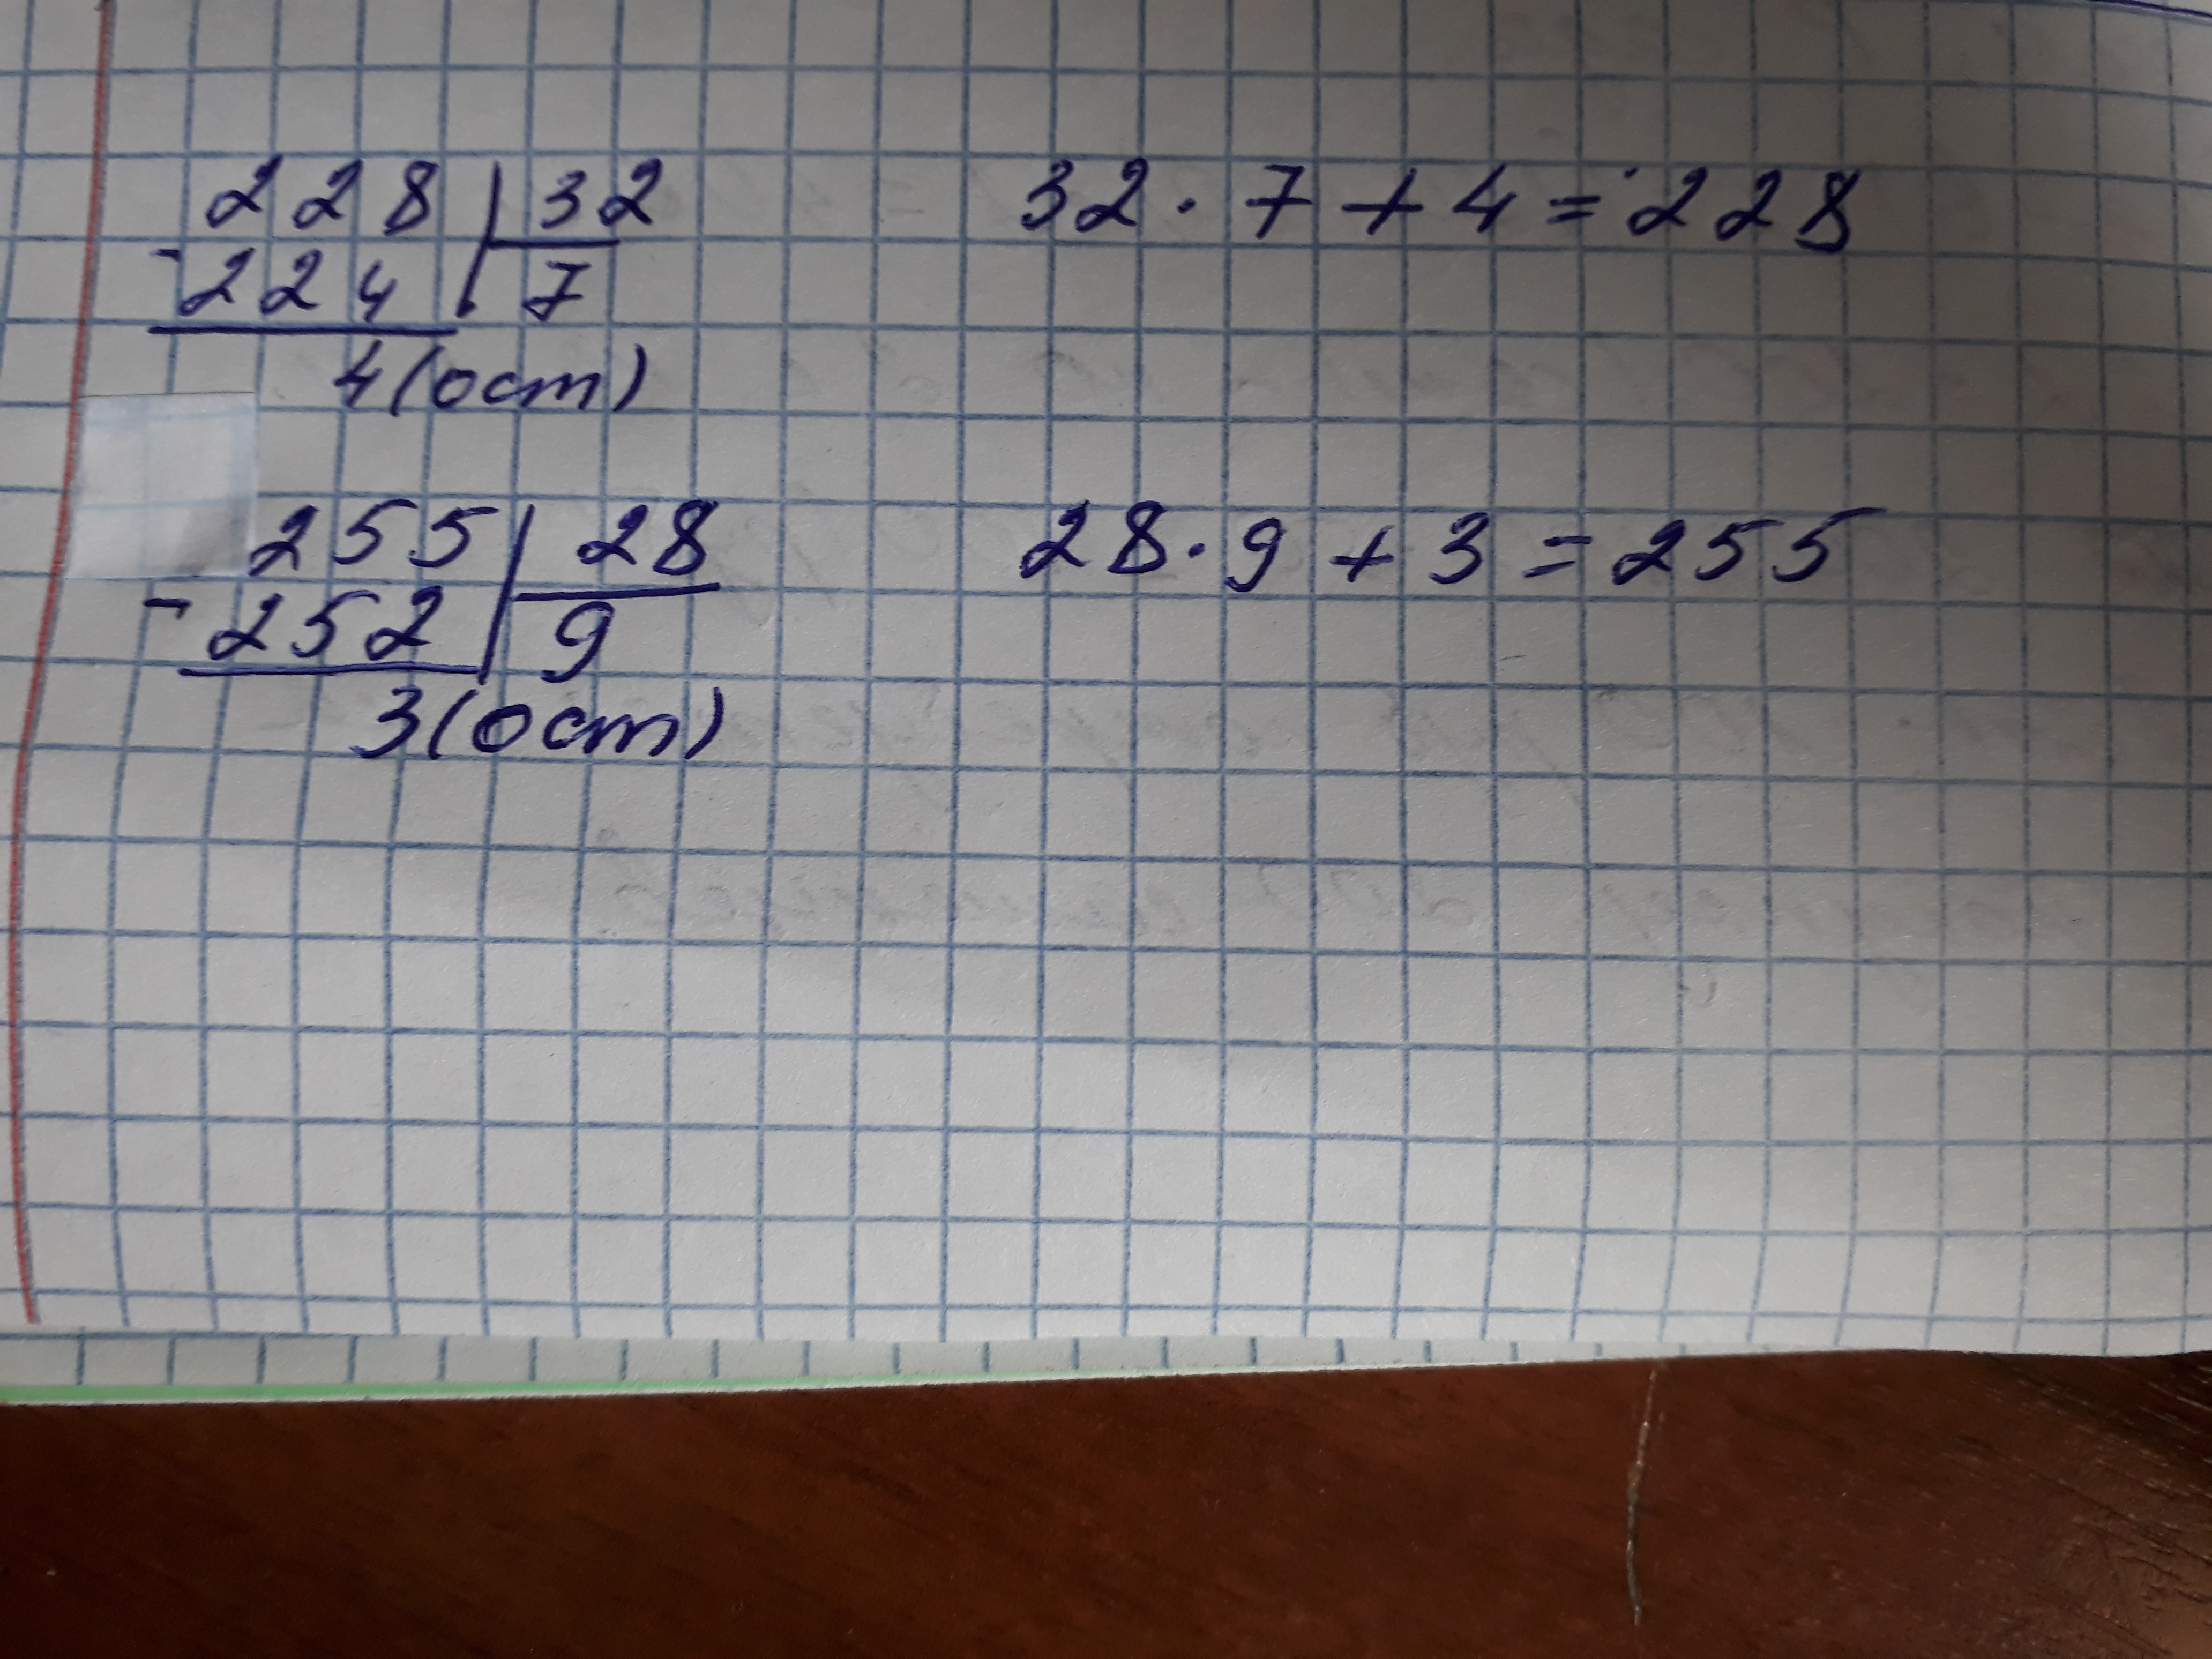 228 | 32    32 · 7 + 4 = 228
- 224 | 7
4 (ост)
255 | 28    28 · 9 + 3 = 255
- 252 | 9
3 (ост)